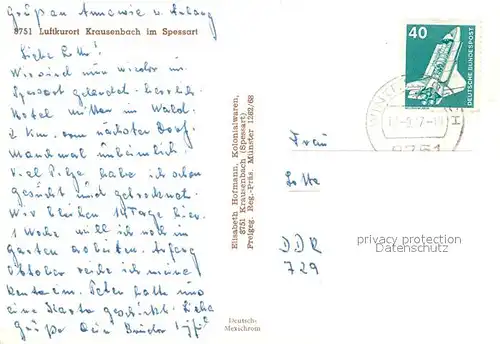 Grüße an Annewie u. Anhang
8751 Luftkurort Krausenbach im Spessart
Liebe Lotte!
Wir sind nun wieder im
Spessart gelandet. herrlich
Hotel mitten im Wald.
2 Km. vom nächsten Dorf.
Manchmal unheimlich!
Viel Pilze habe ich schon
gesucht und getrocknet.
Wir bleiben 14 Tage hier.
1 Woche will ich noch im
Garten arbeiten. Anfang
Oktober reiche ich meine
Rente ein. Peter hatte uns
eine Karte geschickt. Liebe
Grüße Dein Bruder
Elisabeth Hofmann, Kolonialwaren,
8751 Krausenbach (Spessart)
Preigeg. Reg.-Präs. Münster 1282/68
Deutsche
Mexichrom
40
DEUTSCHE BUNDESPOST
8751
Frau
Lotte
DDR
729
privacy protection
watermark